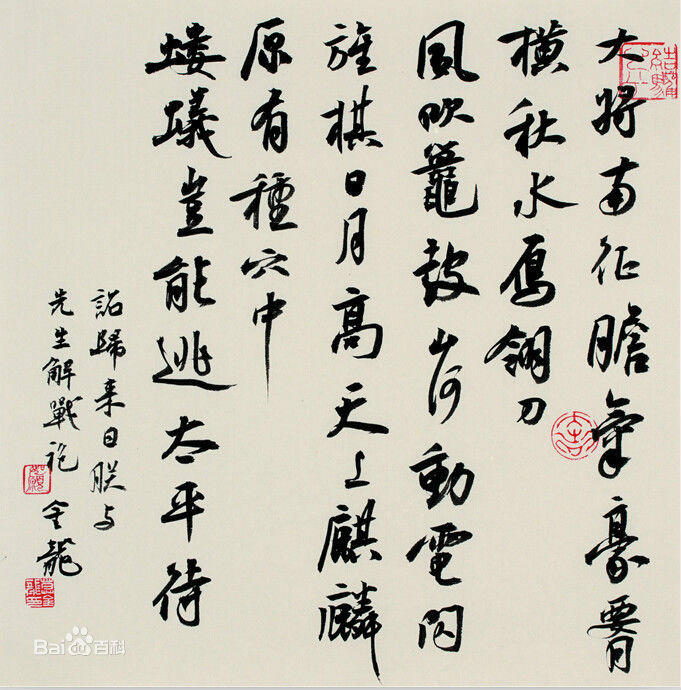 大将南征膽氣豪腰
横秋水鴈翎刀
風吹鼉鼓山河動電閃
旌棋日月高天上麒麟
原有種穴中
螻蟻豈能逃太平待
詔歸来日朕与
先生解戰袍 金龍
Bai百科